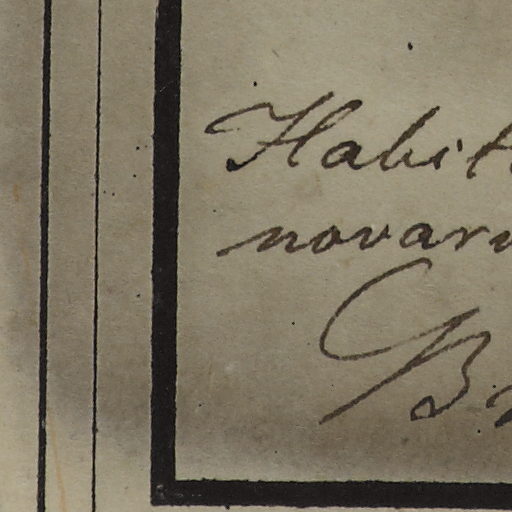 Habit
novar
B